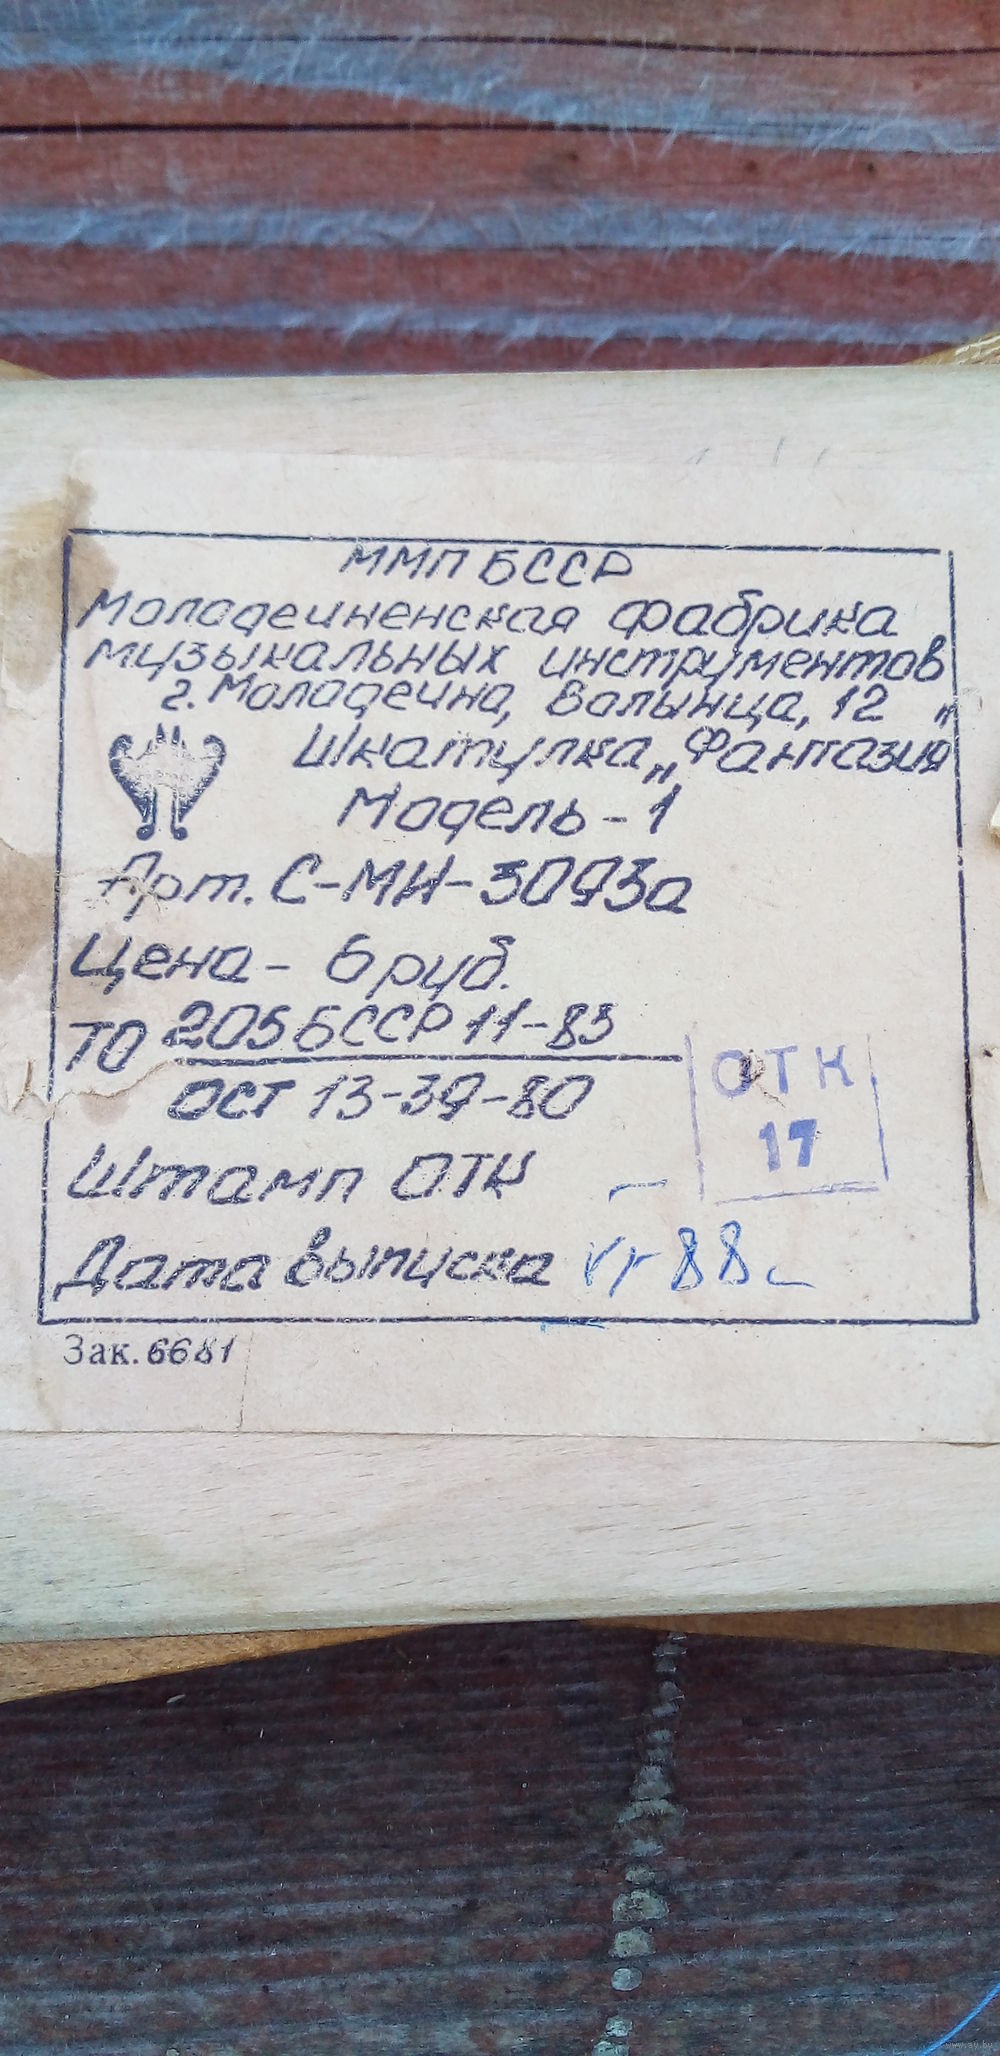 ММП БССР
Молодечненская фабрика
музыкальных инструментов
г. Молодечно, Волынца, 12 "
Шкатулка „Фантазия
Модель - 1
Арт. С-МИ-3093а
Цена - 6 руб.
ТО 205 БССР 11-83
ОСТ 13-39-80
ОТК
17
Штамп ОТК
Дата выпуска 88
Зак. 6681